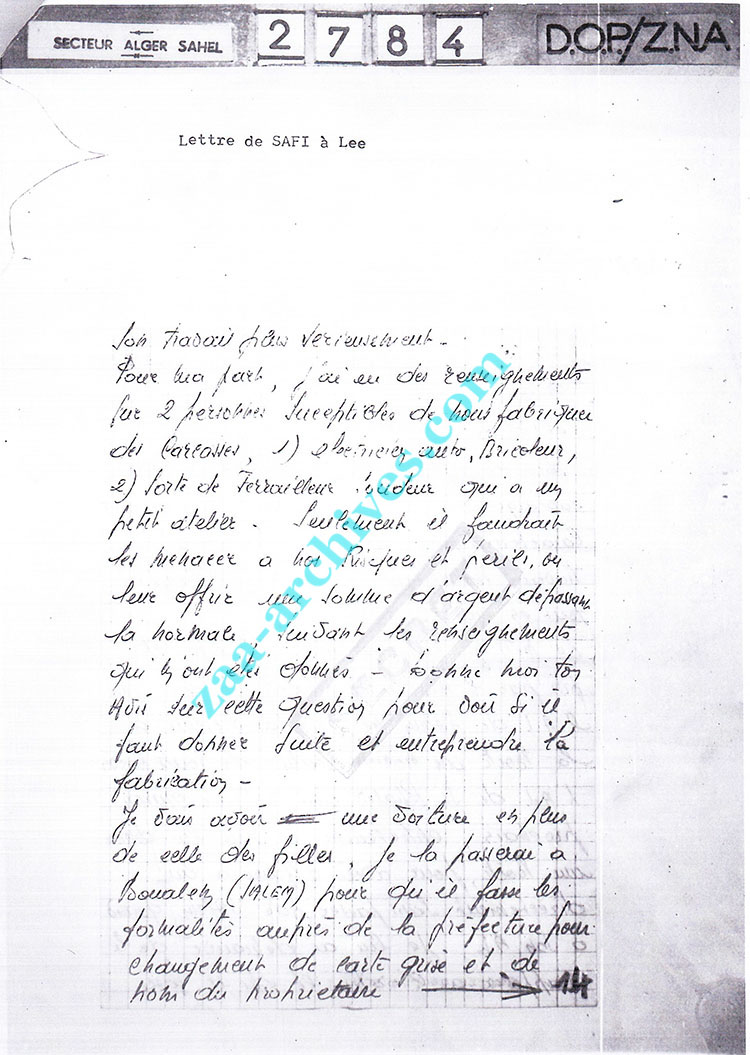 SECTEUR ALGER SAHEL
2 7 8 4
D.O.P/Z.N.A
Lettre de SAFI à Lee
son travail plus serieusement -
Pour ma part, j'ai eu des renseignements
sur 2 personnes suceptibles de nous fabriquer
des Carcasses, 1) electricien auto, Bricoleur,
2) Sorte de Ferrailleur soudeur qui a un
petit atelier. Seulement il faudrait
les menacer a nos Risques et perils, ou
leur offrir une somme d'argent dépassant
la normale, suivant les renseignements
qui m'ont étés donnés - Donne moi ton
Avis sur cette question pour voir si il
faut donner suite et entreprendre la
fabrication -
Je vais avoir une voiture en plus
de celle des filles, je la passerai a
Boualem (SALEM) pour qu'il fasse les
formalités auprès de la préfecture pour
changement de carte grise et de
nom du proprietaire 14
zaa-archives.com